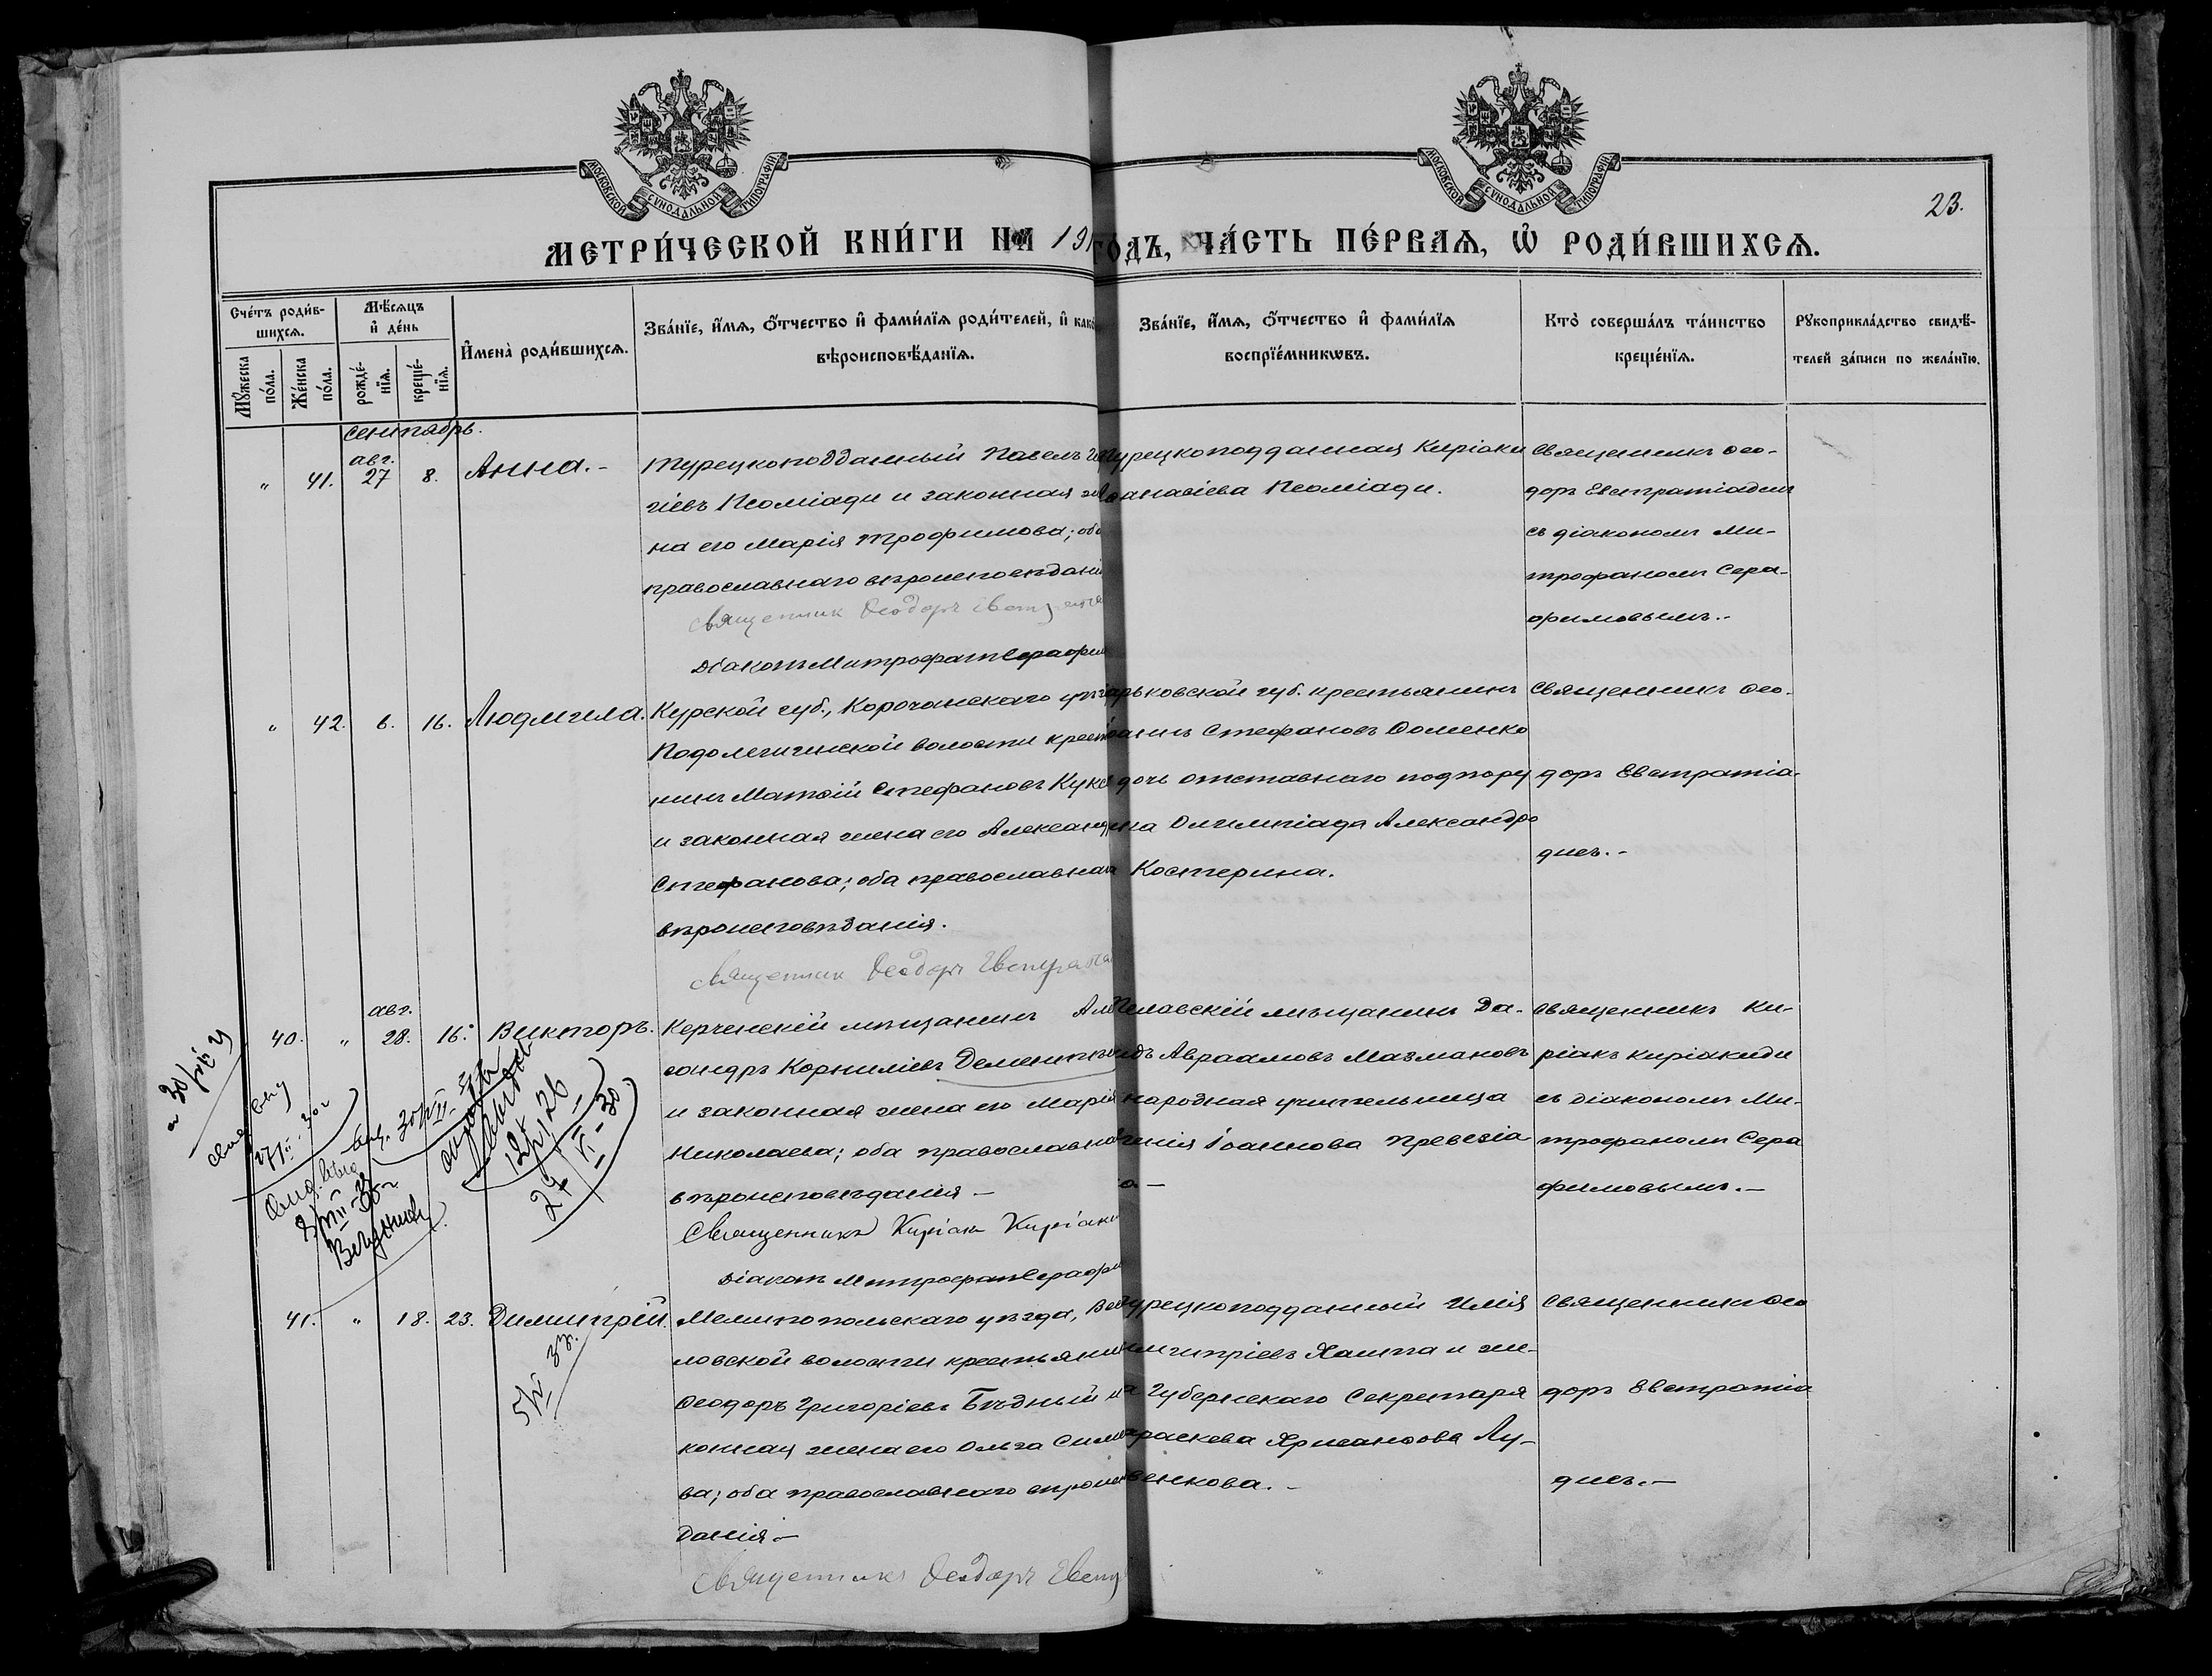 МОСКОВСКОЙ СУНОДАЛЬНОЙ ТИПОГРАФІИ
МОСКОВСКОЙ СУНОДАЛЬНОЙ ТИПОГРАФІИ
23.
МЕТРИ́ЧЕСКОЙ КНИ́ГИ НА 191
ГО́ДЪ, ЧА́СТЬ ПЕ́РВАѦ, Ѡ҆ РОДИ́ВШИХСѦ.
Сче́тъ роди́в-
шихсѧ.
Мѣ́сѧцъ
и҆ де́нь
Мꙋ́жеска по́ла.
Же́нска по́ла.
рожде́-
нїѧ.
креще́-
нїѧ.
И҆мена̀ роди́вшихсѧ.
Зва́нїе, и҆́мѧ, ѻ҆́тчество и҆ фами́лїѧ роди́телей, и҆ како
вѣроисповѣ́данїѧ.
Зва́нїе, и҆́мѧ, ѻ҆́тчество и҆ фами́лїѧ
воспрїе́мникѡвъ.
Кто̀ соверша́лъ та́инство
креще́нїѧ.
Рꙋкоприкла́дство свидѣ́-
телей за́писи по жела́нїю.
Сентябрь.
" 41. авг. 27 8. Анна.-
Турецкоподданный Павелъ
гіевъ Псоміади и законная же
на его Марія Трофимова; оба
православнаго вѣроисповѣдані
Священник Ѳеодоръ Евстратіа
Діаконъ Митрофанъ Серафим
Турецкоподданная Киріаки
ѳанасіева Псоміади.
Священникъ Ѳео-
доръ Евстратіадисъ
съ діакономъ Ми-
трофаномъ Сера-
фимовымъ.-
" 42. 6. 16. Людмила.
Курской губ., Корочанскаго уѣз
Подолешинской волости крест
нинъ Матѳій Стефановъ
и законная жена его Александра
Стефанова; оба православнаго
вѣроисповѣданія.
Священник Ѳеодоръ Евстратіа
арьковской губ. крестьянинъ
Стефановъ Доменко
дочь отставнаго подпору
Олимпіада Александро
Костерина.
Священникъ Ѳео-
доръ Евстратіа-
дисъ.-
40. " авг. 28. 16. Викторъ.
Керченскій мѣщанинъ Алек
сандръ Корниліевъ Дементьев
и законная жена его Марія
Николаева; оба православнаго
вѣроисповѣданія-
Священникъ Киріакъ Киріаки
Діаконъ Митрофанъ Серафи
славскій мѣщанинъ Да-
идъ Авраамовъ Мазмановъ
народная учительница
генія Іоаннова Превезіа
а-
Священникъ Ки-
ріакъ Киріакиди
съ діакономъ Ми-
трофаномъ Сера
фимовымъ.-
41. " 18. 23. Димитрій.
Мелитопольскаго уѣзда,
ловской волости крестьянин
Ѳеодоръ Григоріевъ Бѣдный и за
конная жена его Ольга
ва; оба православнаго вѣроиспов
данія-
Священникъ Ѳеодоръ Евст
Турецкоподданный Илія
имитріевъ и же-
на Губернскаго Секретаря
араскева Хрисанѳова Лу-
венкова.-
Священникъ Ѳео
доръ Евстратіа
дисъ.-